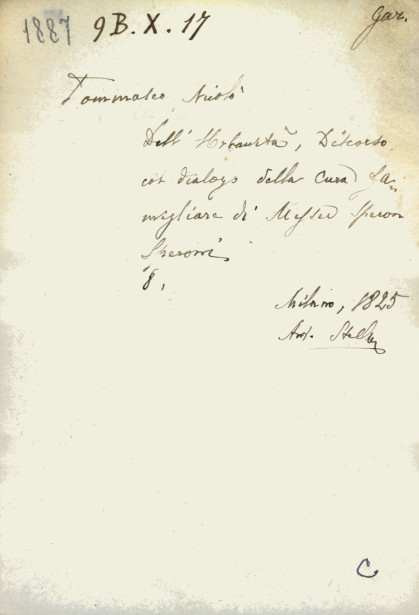 1887 9B.X.17 Gar.
Tommaseo, Nicolò
Dell' Urbanità, Discorso,
col dialogo della Cura Fa-
migliare di Messer Speron
Speroni
8,
Milano, 1825
Ant. Stella
C